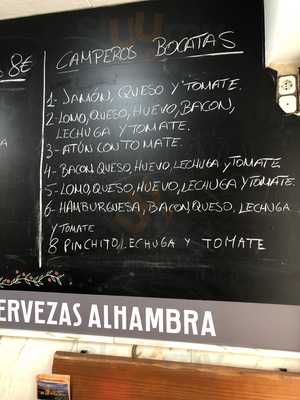 8€
CAMPEROS BOCATAS
1- JAMÓN, QUESO Y TOMATE.
2- LOMO, QUESO, HUEVO, BACON,
LECHUGA Y TOMATE.
3- ATÚN CON TOMATE.
4- BACON, QUESO, HUEVO, LECHUGA, Y TOMATE
5- LOMO, QUESO, HUEVO, LECHUGA Y TOMATE.
6- HAMBURGUESA, BACON, QUESO, LECHUGA
Y TOMATE
8 PINCHITO, LECHUGA Y TOMATE
ERVEZAS ALHAMBRA